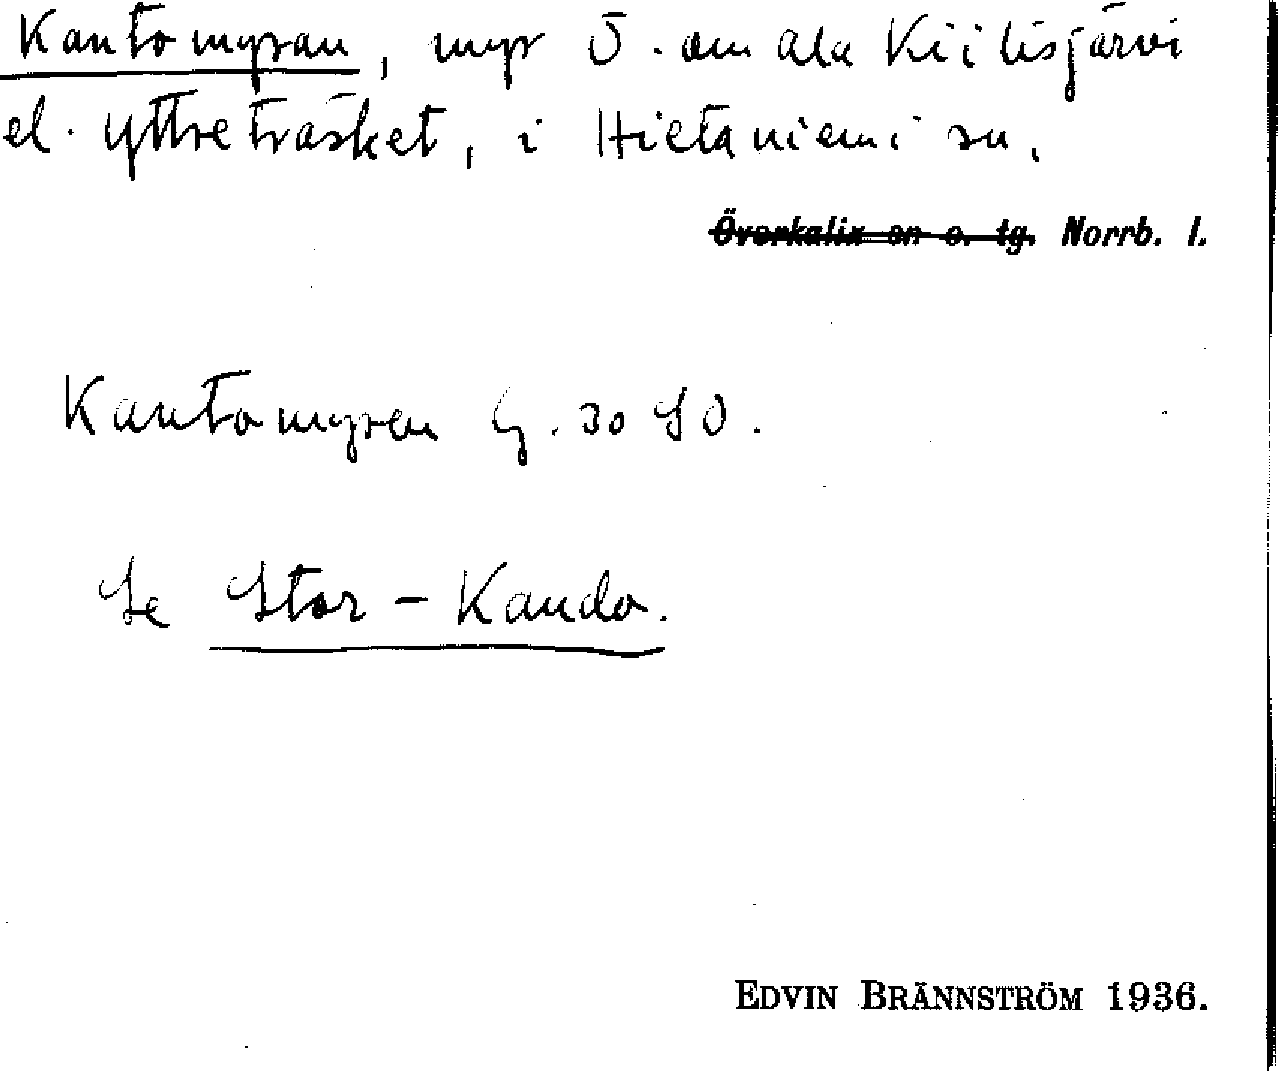 Kantomyran, myr Ö. om Ala Kiilisjärvi
el. Yttreträsket, i Hietaniemi sn.
Överkalix sn o. tg. Norrb. l.
Kantomyren G. 30 SO.
Se Stor-Kando.
EDVIN BRÄNNSTRÖM 1936.